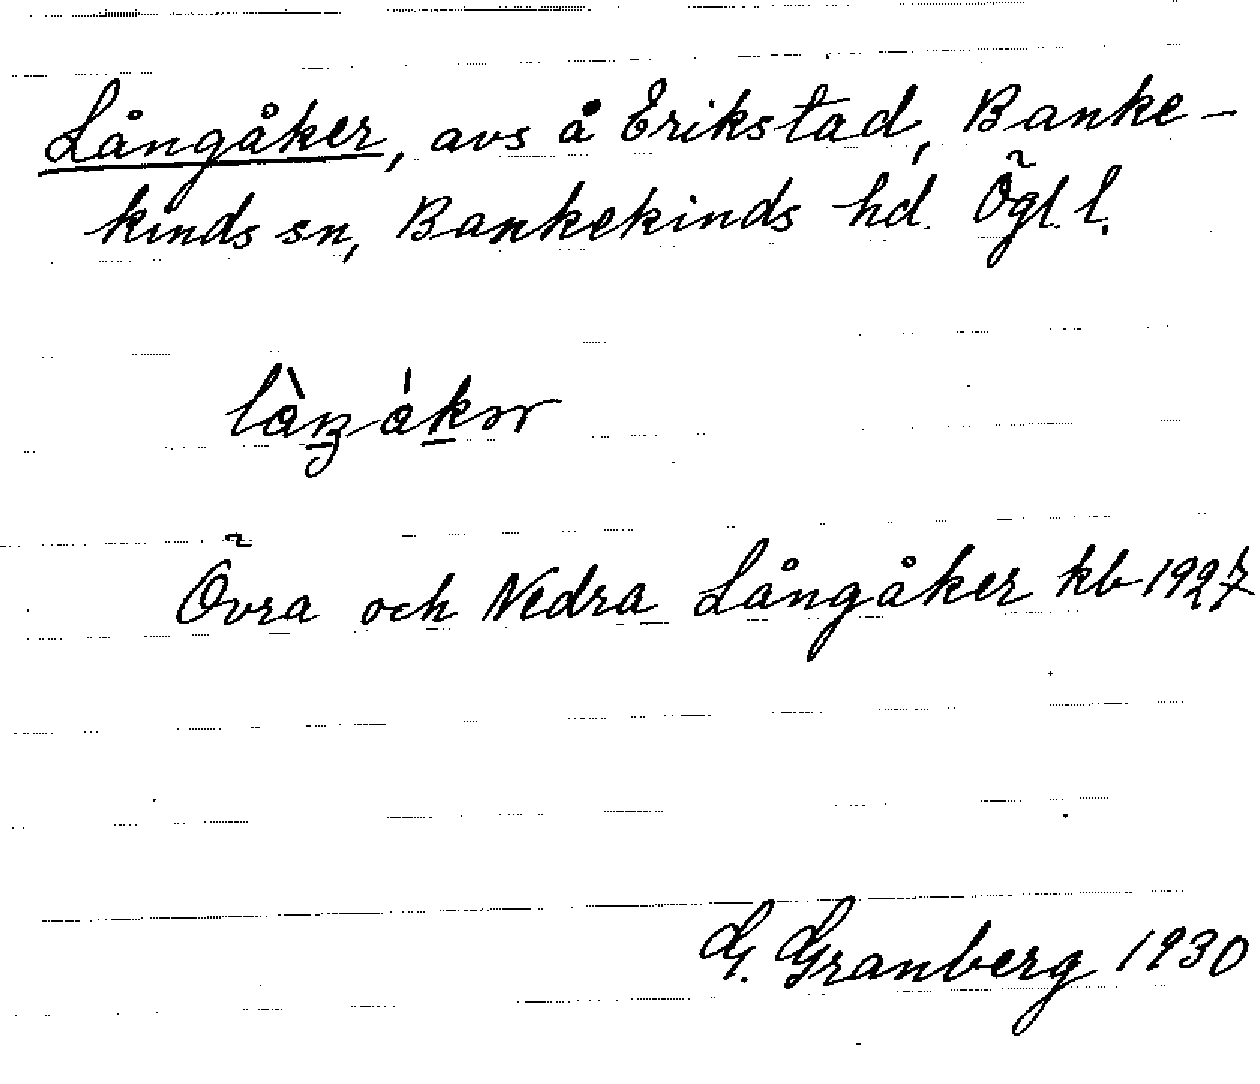 Långåker, avs å Erikstad, Banke-
kinds sn, Bankekinds hd. Ögl. l.
Övra och Nedra Långåker kb 1927
G. Granberg 1930